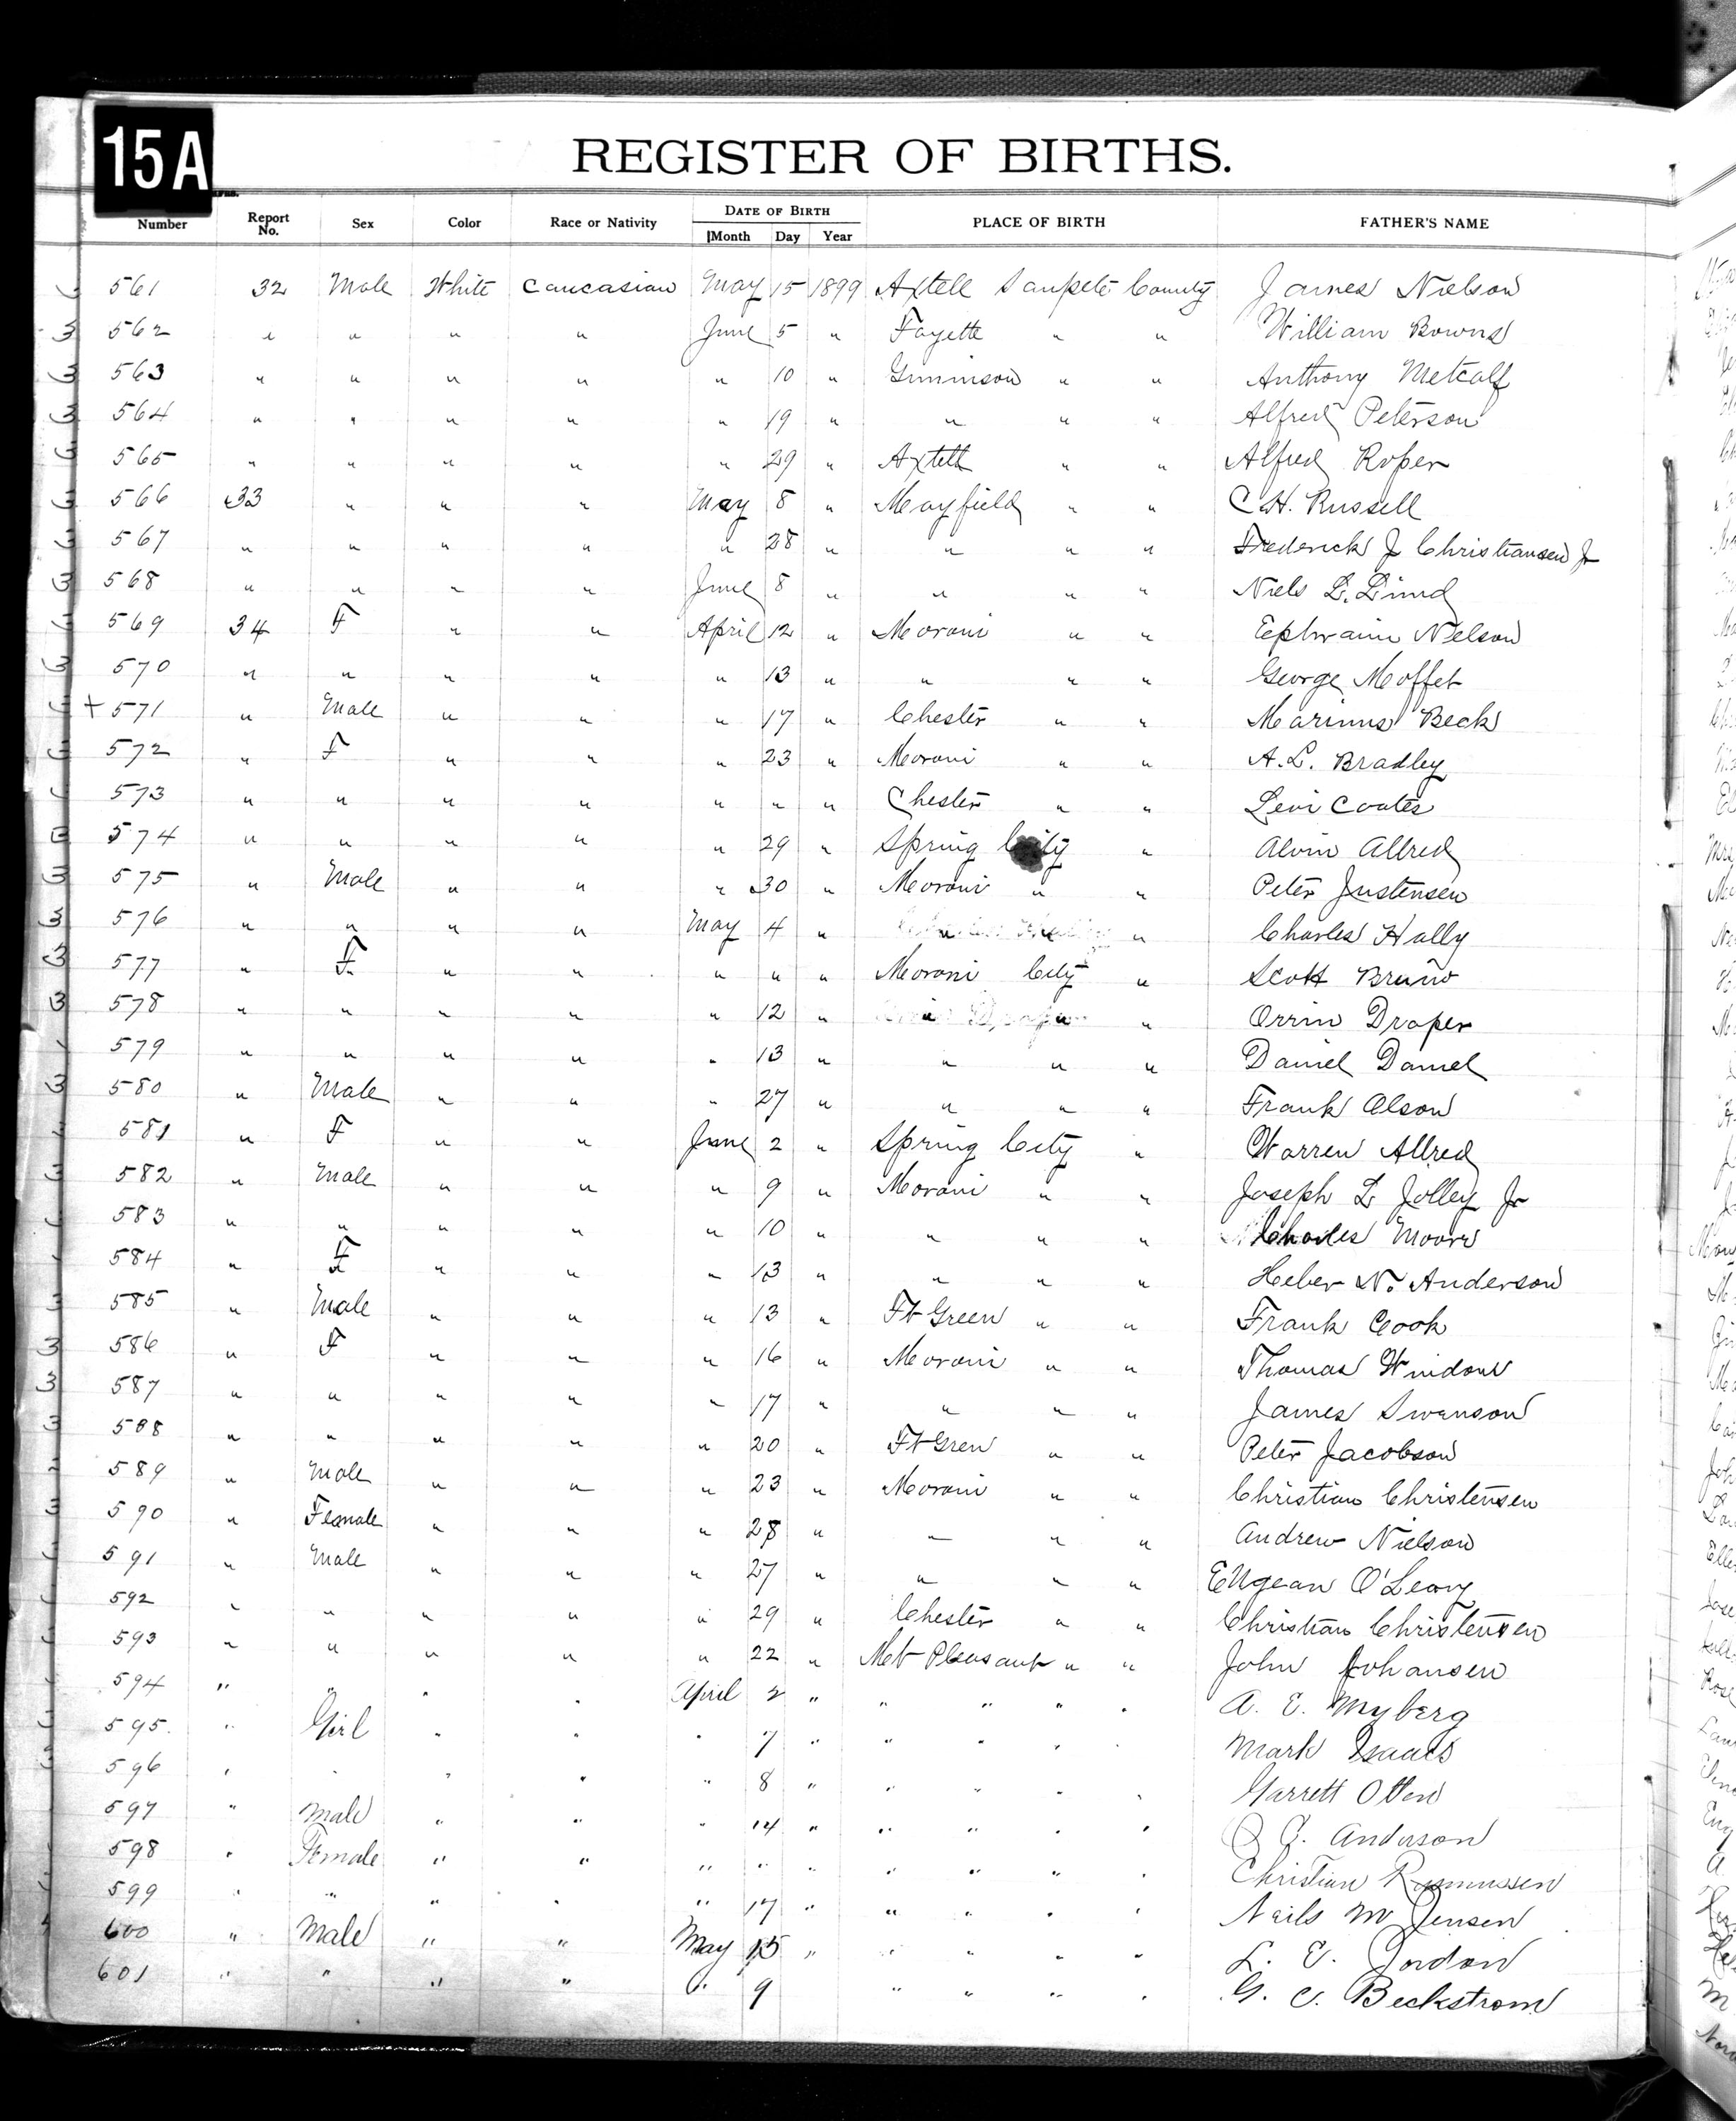 15A
REGISTER OF BIRTHS.
Number Report No. Sex Color Race or Nativity DATE OF BIRTH Month Day Year PLACE OF BIRTH FATHER'S NAME
561 32 Male White Caucasian May 15 1899 Axtell Sanpete County James Nielson
562 " " " " June 5 " Fayette " " William Bown
563 " " " " " 10 " Gunnison " " Anthony Metcalf
564 " " " " " 19 " " " " Alfred Peterson
565 " " " " " 29 " Axtell " " Alfred Roper
566 33 " " " May 8 " Mayfield " " C.H. Russell
567 " " " " " 28 " " " " Frederick J Christiansen Jr
568 " " " " June 8 " " " " Niels L. Lund
569 34 F " " April 12 " Moroni " " Ephraim Nelson
570 " " " " " 13 " " " " George Moffet
+ 571 " Male " " " 17 " Chester " " Marinus Beck
572 " F " " " 23 " Moroni " " A.L. Bradley
573 " " " " " " " Chester " " Levi Coates
574 " " " " " 29 " Spring City " Alvin Allred
575 " Male " " " 30 " Moroni " " Peter Justensen
576 " " " " May 4 " " " Charles Hally
577 " F " " " " " Moroni City " Scott Bruno
578 " " " " " 12 " " " Orrin Draper
579 " " " " " 13 " " " " Daniel Daniel
580 " Male " " " 27 " " " " Frank Olson
581 " F " " June 2 " Spring City " Warren Allred
582 " Male " " " 9 " Moroni " " Joseph L Jolley Jr
583 " " " " " 10 " " " " Charles Moore
584 " F " " " 13 " " " " Heber N. Anderson
585 " Male " " " 13 " Ft Green " " Frank Cook
586 " F " " " 16 " Moroni " " Thomas Windows
587 " " " " " 17 " " " " James Swanson
588 " " " " " 20 " Ft Gren " " Peter Jacobson
589 " Male " " " 23 " Moroni " " Christian Christensen
590 " Female " " " 28 " " " " Andrew Nielson
591 " Male " " " 27 " " " " Eugean O'Leary
592 " " " " " 29 " Chester " " Christian Christensen
593 " " " " " 22 " Mt Pleasant " " John Johansen
594 " " " " April 2 " " " " " A. E. Myberg
595. " Girl " " " 7 " " " " " Mark Isaacs
596 " " " " " 8 " " " " " Garrett Otten
597 " Male " " " 14 " " " " " C. Anderson
598 " Female " " " " " " " " " Christian Rasmussen
599 " " " " " 17 " " " " " Neils M Jensen
600 " Male " " May 15 " " " " " L. E. Jordon
601 " " " " " 9 " " " " G. C. Beckstrom